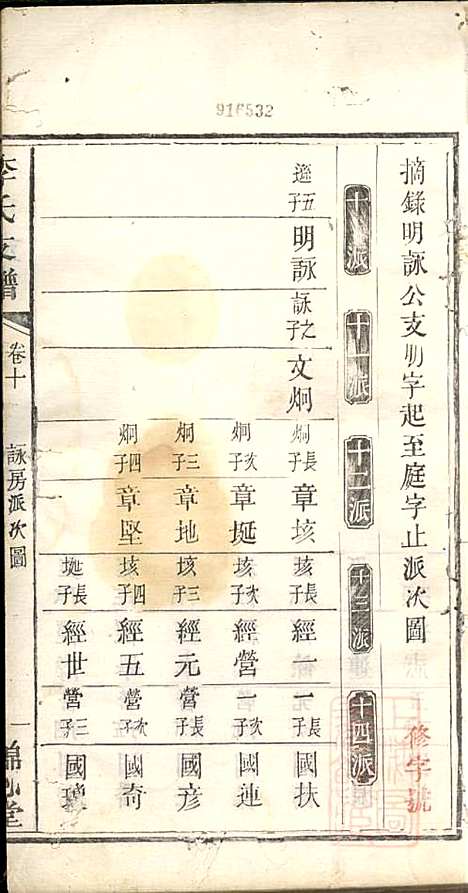 916532
摘錄明詠公支明字起至庭字止派次圖
修字號
十派
十一派
十二派
十三派
十四派
遜五子
明詠
詠之子
文炯
炯長子
章垓
垓長子
經一
一長子
國扶
炯次子
章埏
垓次子
經營
一次子
國連
炯三子
章地
垓三子
經元
營長子
國彦
炯四子
章堅
垓四子
經五
營次子
國奇
埏長子
經世
營三子
國
李氏支譜
卷十
詠房派次圖
一
堂